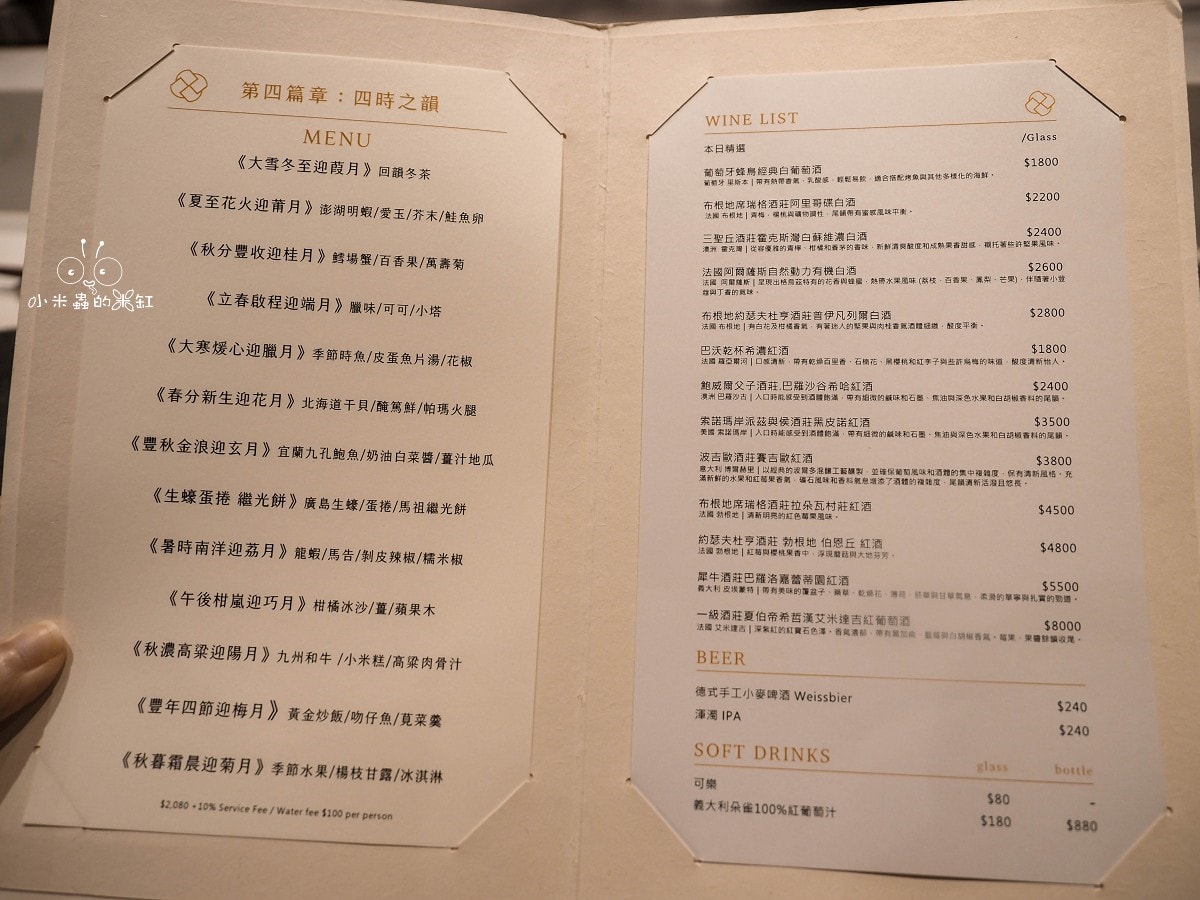 第四篇章：四時之韻
MENU
《大雪冬至迎葭月》回韻冬茶
《夏至花火迎莆月》澎湖明蝦/愛玉/芥末/鮭魚卵
《秋分豐收迎桂月》鱈場蟹/百香果/萬壽菊
《立春啟程迎端月》臘味/可可/小塔
《大寒煖心迎臘月》季節時魚/皮蛋魚片湯/花椒
《春分新生迎花月》北海道干貝/醃篤鮮/帕瑪火腿
《豐秋金浪迎玄月》宜蘭九孔鮑魚/奶油白菜醬/薑汁地瓜
《生蠔蛋捲 繼光餅》廣島生蠔/蛋捲/馬祖繼光餅
《暑時南洋迎荔月》龍蝦/馬告/剝皮辣椒/糯米椒
《午後柑嵐迎巧月》柑橘冰沙/薑/蘋果木
《秋濃高粱迎陽月》九州和牛 /小米糕/高粱肉骨汁
《豐年四節迎梅月》黃金炒飯/吻仔魚/莧菜羹
《秋暮霜晨迎菊月》季節水果/楊枝甘露/冰淇淋
$2,080 +10% Service Fee / Water fee $100 per person
小米蟲的米缸
WINE LIST
/Glass
本日精選
葡萄牙蜂鳥經典白葡萄酒 $1800
葡萄牙 里斯本 | 帶有熱帶香氣、乳酸感、輕鬆易飲，適合搭配烤魚與其他多樣化的海鮮。
布根地席瑞格酒莊阿里哥碟白酒 $2200
法國 布根地 | 青梅、楊桃與礦物調性，尾韻帶有蜜感風味平衡。
三聖丘酒莊霍克斯灣白蘇維濃白酒 $2400
澳洲 霍克灣 | 從容優雅的青檸、柑橘和香茅的香味，新鮮清爽酸度和成熟果香甜感，襯托著些許堅果風味。
法國阿爾薩斯自然動力有機白酒 $2600
法國 阿爾薩斯 | 呈現出格烏茲特有的花香與蜂蜜、熱帶水果風味 (荔枝、百香果、鳳梨、芒果)，伴隨著小荳
蔻與丁香的氣味。
布根地約瑟夫杜亨酒莊普伊凡列爾白酒 $2800
法國 布根地 | 有白花及柑橘香氣，有著迷人的堅果與肉桂香氣酒體細緻，酸度平衡。
巴沃乾杯希濃紅酒 $1800
法國 羅亞爾河 | 口感清新，帶有乾燥百里香、石榴花、黑櫻桃和紅李子與些許烏梅的味道，酸度清新怡人。
鮑威爾父子酒莊.巴羅沙谷希哈紅酒 $2400
澳洲 巴羅沙古 | 入口時能感受到酒體飽滿，帶有細微的鹹味和石墨、焦油與深色水果和白胡椒香料的尾韻。
索諾瑪岸派茲與侯酒莊黑皮諾紅酒 $3500
美國 索諾瑪岸 | 入口時能感受到酒體飽滿，帶有細微的鹹味和石墨、焦油與深色水果和白胡椒香料的尾韻。
波吉歐酒莊賽吉歐紅酒 $3800
意大利 博爾赫里 | 以經典的波爾多混釀工藝釀製，並確保葡萄風味和酒體的集中複雜度，保有清新風格。充
滿新鮮的水果和紅莓果香氣，礦石風味和香料氣息增添了酒體的複雜度，尾韻清新活潑且悠長。
布根地席瑞格酒莊拉朵瓦村莊紅酒 $4500
法國 勃根地 | 清新明亮的紅色莓果風味。
約瑟夫杜亨酒莊 勃根地 伯恩丘 紅酒 $4800
法國 勃根地 | 紅莓與櫻桃果香中，浮現蘑菇與大地芬芳。
犀牛酒莊巴羅洛嘉蕾蒂園紅酒 $5500
義大利 皮埃蒙特 | 帶有美味的覆盆子、藥草、乾燥花、薄荷、菸草與甘草氣息，柔滑的單寧與扎實的勁道。
一級酒莊夏伯帝希哲漢艾米達吉紅葡萄酒 $8000
法國 艾米達吉 | 深紫紅的紅寶石色澤，香氣濃郁，帶有黑加侖、藍莓與白胡椒香氣。莓果、果醬餘韻收尾。
BEER
德式手工小麥啤酒 Weissbier $240
渾濁 IPA $240
SOFT DRINKS glass bottle
可樂 $80 -
義大利朵雀100%紅葡萄汁 $180 $880